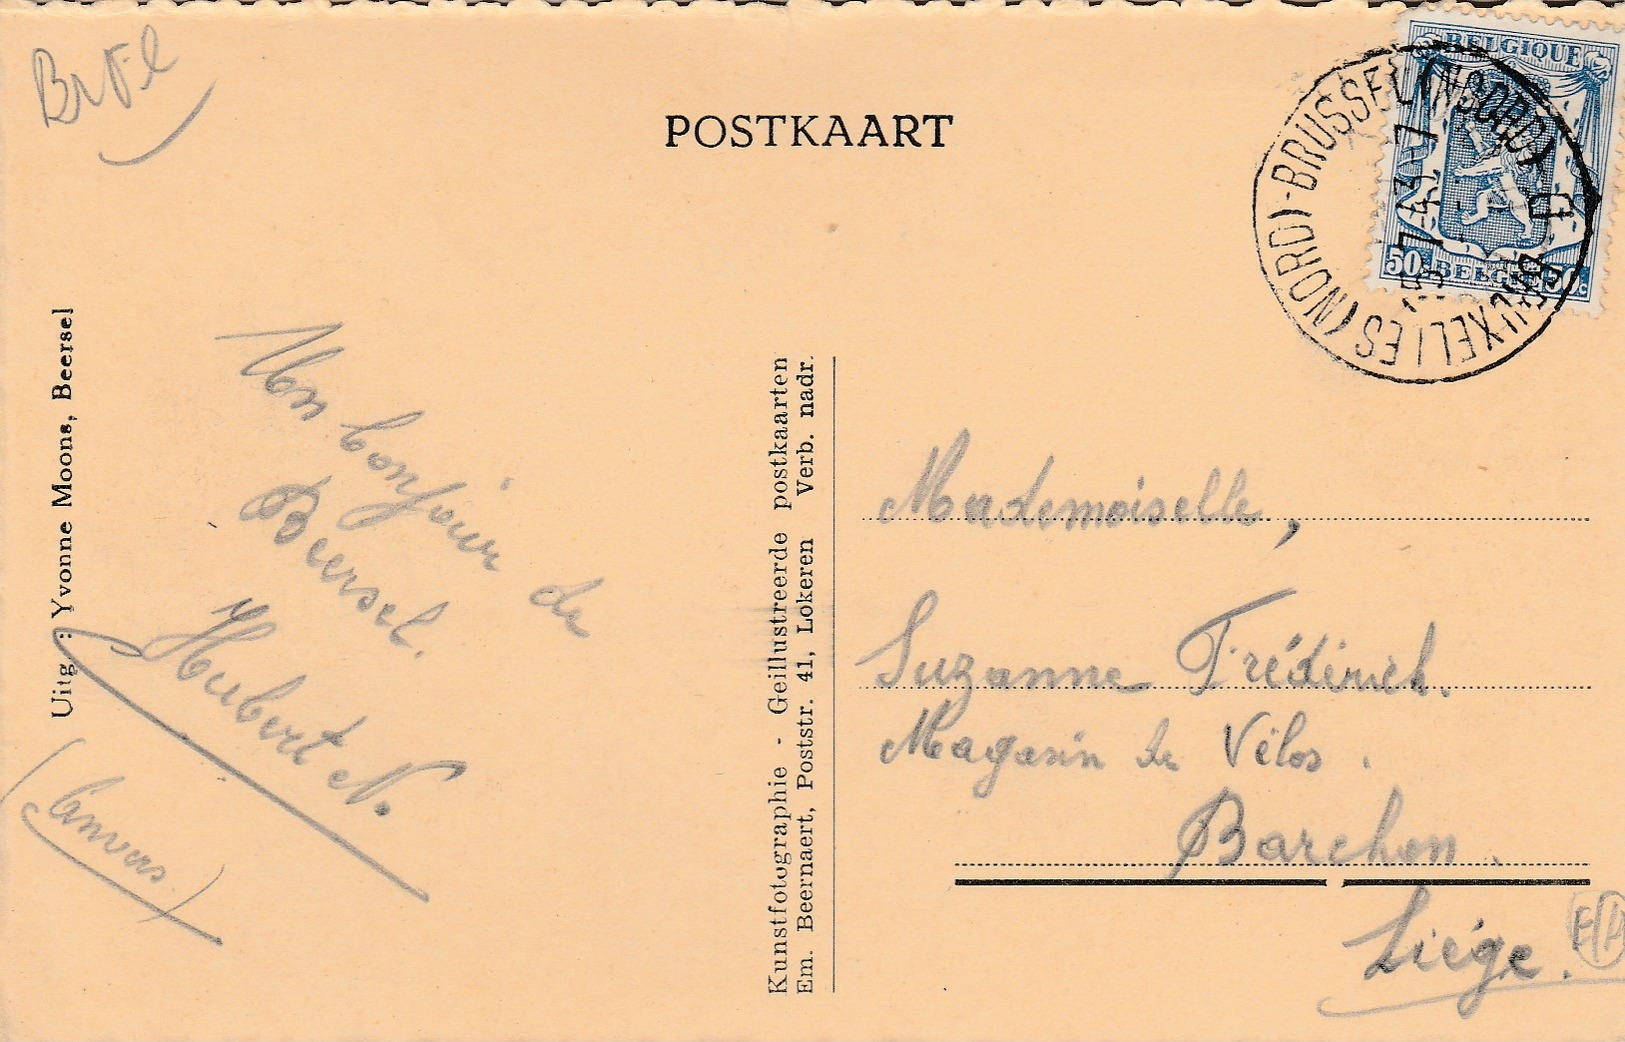 BrFl
POSTKAART
BELGIQUE
50
BELGIE
BRUSSEL (NOORD)
BRUXELLES (NORD)
7 43
Uitg : Yvonne Moons, Beersel
Mon bonjour de
Beersel.
Hubert N.
(Anvers.)
Kunstfotographie - Geillustreerde postkaarten
Em. Beernaert, Poststr. 41, Lokeren Verb. nadr.
Mademoiselle,
Suzanne Frédérick.
Magasin de Vélos.
Barchon.
Liége.